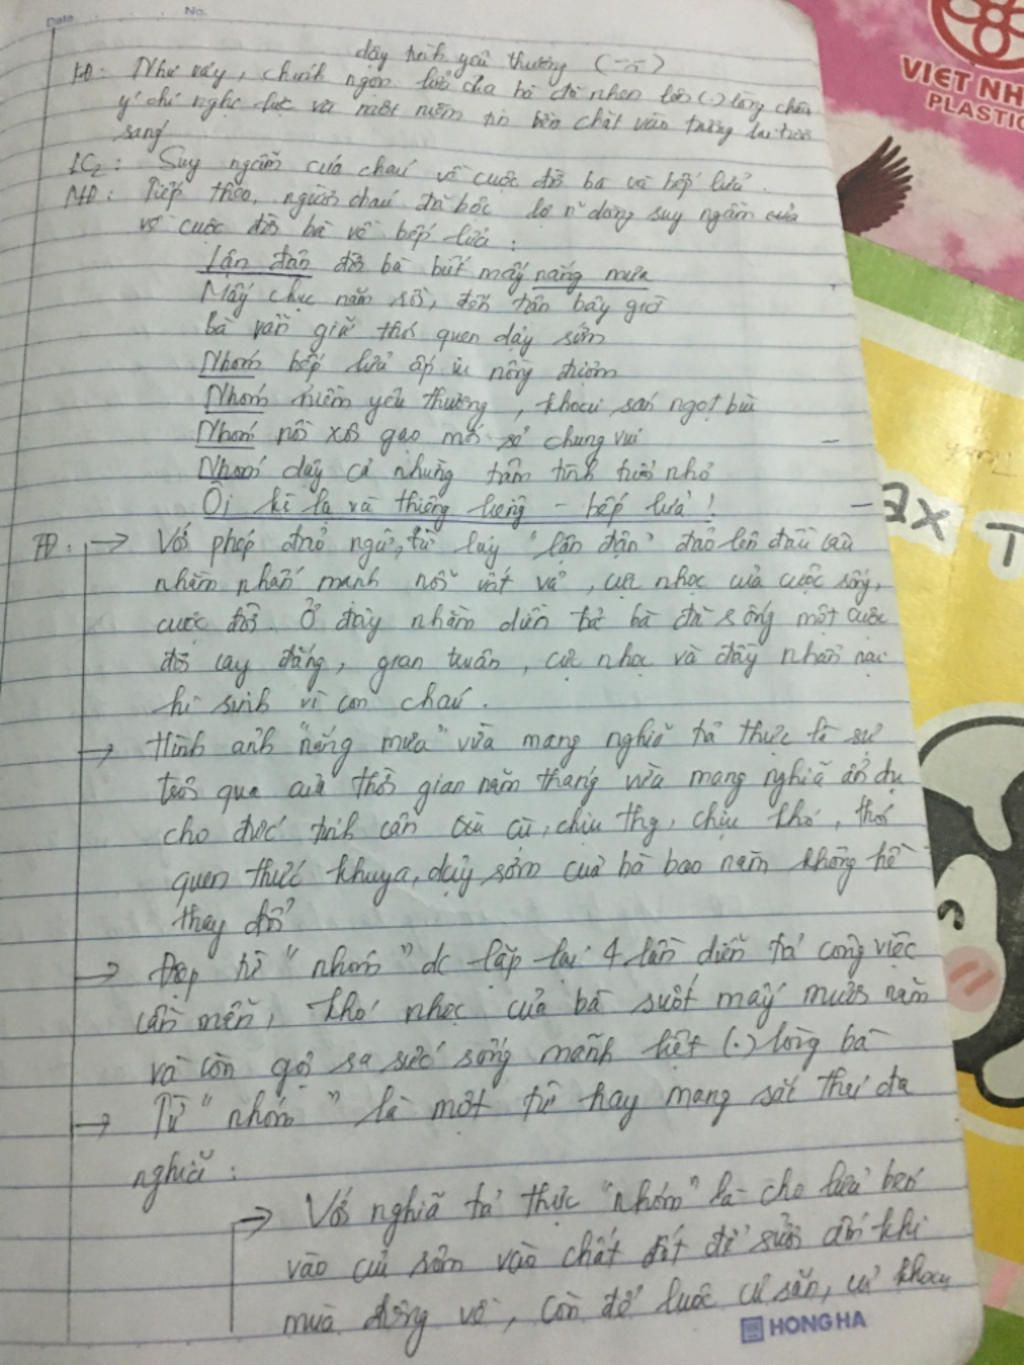 Date No.
dậy tình yêu thương (-n-)
KĐ: Như vậy, chính ngọn lửa của bà đã nhen lên (.) lòng cháu
ý chí nghị lực và một niềm tin bền chặt vào tương lai tươi
sáng
LC2: Suy ngẫm của cháu về cuộc đời bà và bếp lửa.
NĐ: Tiếp theo, người cháu đã bộc lộ dòng suy ngẫm của
về cuộc đời bà về bếp lửa:
Lận đận đời bà biết mấy nắng mưa
Mấy chục năm rồi, đến tận bây giờ
Bà vẫn giữ thói quen dậy sớm
Nhóm bếp lửa ấp iu nồng đượm
Nhóm niềm yêu thương, khoai sắn ngọt bùi
Nhóm nồi xôi gạo mới sẻ chung vui
Nhóm dậy cả những tâm tình tuổi nhỏ
Ôi kì lạ và thiêng liêng - bếp lửa!
→ Với phép đảo ngữ, từ láy "lận đận" đảo lên đầu câu
nhằm nhấn mạnh nỗi vất vả, cực nhọc của cuộc sống,
cuộc đời. Ở đây nhằm diễn tả bà đã sống một cuộc
đời cay đắng, gian truân, cực nhọc và đầy nhẫn nại
hi sinh vì con cháu.
→ Hình ảnh "nắng mưa" vừa mang nghĩa tả thực là sự
trôi qua của thời gian năm tháng vừa mang nghĩa ẩn dụ
cho đức tính cần cù, chịu thg, chịu khó, thói
quen thức khuya, dậy sớm của bà bao năm không hề
thay đổi
→ Điệp từ "nhóm" đc lặp lại 4 lần diễn tả công việc
cần mẫn, khó nhọc của bà suốt mấy mươi năm
và còn gợi sa sức sống mãnh liệt (.) lòng bà
→ Từ "nhóm" là một từ hay mang sắc thái đa
nghĩa:
→ Với nghĩa tả thực "nhóm" là cho lửa bén
vào củi rơm vào chất đốt để sưởi ấm khi
mùa đông về, còn để luộc củ sắn, củ khoai,
HONG HA
VIET NH
PLASTIC
ax T